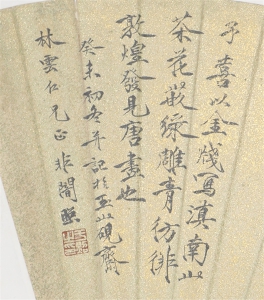 予喜以金牋寫滇南山
茶花嵌綠雕青彷彿
敦煌發見唐畫也
癸未初冬并記於玉山硯齋
林雲仁兄正非闇照